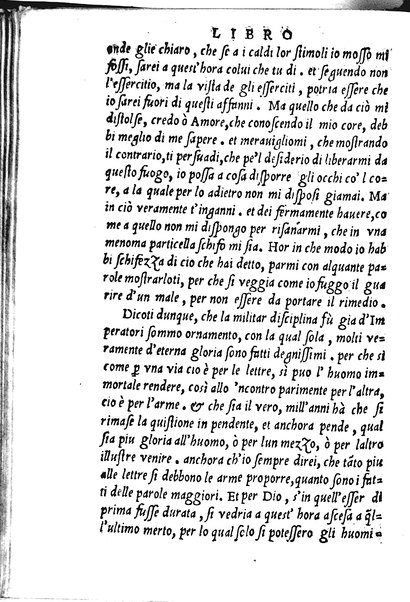 LIBRO
onde glie chiaro, che se a i caldi lor stimoli io mosso mi
fossi, sarei a quest'hora colui che tu di. et seguendo non
l'essercitio, ma la vista de gli esserciti, potria essere che
io sarei fuori di questi affanni. Ma quello che da ciò mi
distolse, credo ò Amore, che conoscendo il mio core, deb
bi meglio di me sapere. et meravigliomi, che mostrando
il contrario, ti persuadi, che pe'l desiderio di liberarmi da
questo fuogo, io possa a cosa disporre gli occhi co'l co-
re, a la quale per lo adietro non mi disposi giamai. Ma
in ciò veramente t'inganni. et dei fermamente havere, co
me a quello non mi dispongo per risanarmi, che in vna
menoma particella schifo mi sia. Hor in che modo io hab
bi schifezza di cio che hai detto, parmi con alquante pa-
role mostrarloti, per che si veggia come io fuggo il gua
rire d'un male, per non essere da portare il rimedio.
Dicoti dunque, che la militar disciplina fù gia d'Im
peratori sommo ornamento, con la qual sola, molti ve-
ramente d'eterna gloria sono fatti degnissimi. per che sì
come ꝑ vna via cio è per le lettre, si puo l'huomo im-
mortale rendere, così allo 'ncontro parimente per l'altra,
cio è per l'arme. & che sia il vero, mill'anni hà che si
rimase la quistione in pendente, et anchora pende, qual
sia piu gloria all'huomo, ò per lun mezzo, ò per laltro
illustre venire. anchora ch'io sempre direi, che tãto piu
alle lettre si debbono le arme proporre, quanto sono i fat-
ti delle parole maggiori. Et per Dio, s'in quell'esser di
prima fusse durata, si vedria a quest'hora ascesa a q̃l-
l'ultimo merto, per lo qual solo si potessero gli huomi-